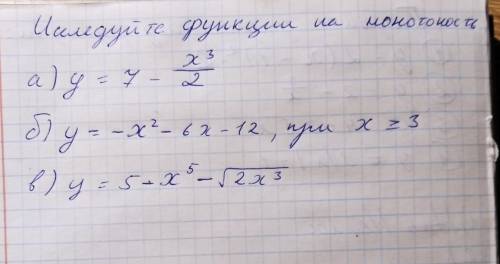 Исследуйте функции на монотоность
а) y = 7 - x³/2
б) y = -x² - 6x - 12, при x ≥ 3
в) y = 5 - x⁵ - √2x³